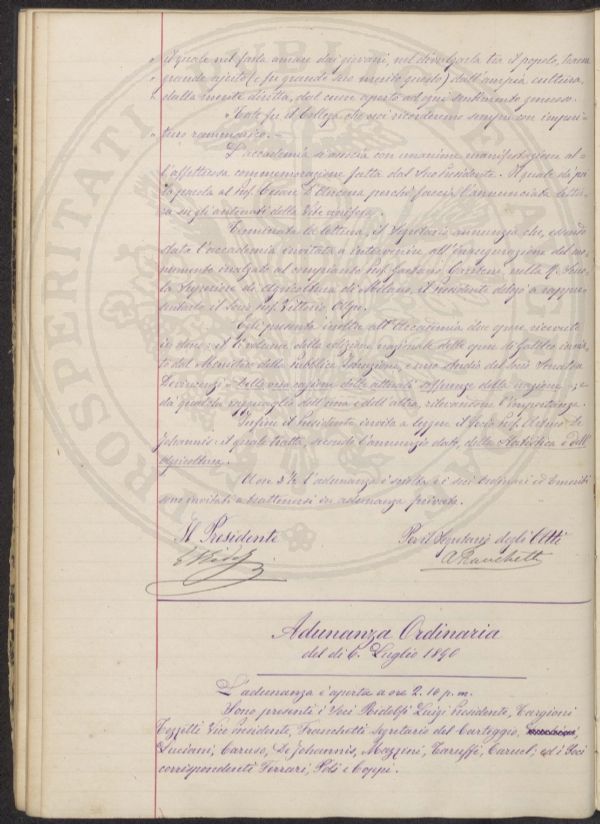 » il quale nel farla amare dai giovani, nel divulgarla tra il popolo, trasse
» grande ajuto (e fu grande suo merito questo) dall'ampia cultura,
» dalla mente diritta, dal cuore aperto ad ogni sentimento generoso.
» Tale fu il Collega che noi ricorderemo sempre con imperi-
» turo rammarico. –
L'accademia si associa con unanime manifestazione al-
l'affettuosa commemorazione fatta dal Presidente. Il quale dà poi
la parola al Prof. Cesare D'Ancona perché faccia l'annunciata lettu-
ra su gli antenati della Vite vinifera.
Terminata la lettura, il Segretario annunzia che, essendo
stata l'accademia invitata a intervenire all'inaugurazione del mo-
numento innalzato al compianto Prof. Gaetano Cantoni, nella R. Scuo-
la Superiore di Agricoltura di Milano, il presidente delegò a rappre-
sentarlo il Socio Prof. Vittorio Alpe.
Egli presenta inoltre all'Accademia due opere ricevute
in dono: il 1° volume della edizione nazionale delle opere di Galileo invia-
to dal Ministro della Pubblica Istruzione, e uno studio del Socio Senatore
Devincenzi « Della vera cagione delle attuali sofferenze della nazione » e
dà qualche ragguaglio dell'una e dell'altra, rilevandone l'importanza.
Infine il Presidente invita a leggere il Socio Prof. Arturo de
Johannis: il quale tratta, secondo l'annunzio dato, della Statistica e dell'
Agricoltura.
Alle ore 3 ¼ l'adunanza è sciolta e i soci Ordinari ed Emeriti
sono invitati a trattenersi in adunanza privata.
Il Presidente
Per il Segretario degli Atti
L. Ridolfi
A Franchetti
Adunanza Ordinaria
del dì 6. Luglio 1890
L'adunanza è aperta a ore 2. 10 p. m.
Sono presenti i Soci Ridolfi Luigi Presidente, Targioni
Tozzetti Vice Presidente, Franchetti Segretario del Carteggio,
Luciani, Caruso, De Johannis, Mazzini, Taruffi, Caruel; ed i Soci
corrispondenti Ferrari, Poli e Coppi.
PROSPERITATI PUBLICAE